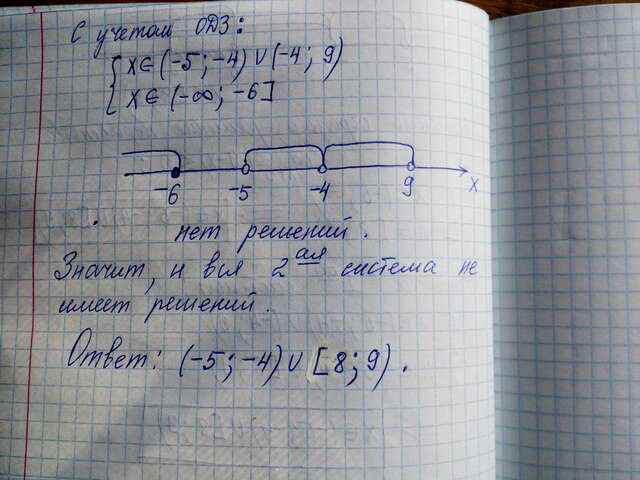 С учетом ОДЗ:
{ x ∈ (-5; -4) ∪ (-4; 9)
x ∈ (-∞; -6]
-6 -5 -4 9 x
нет решений.
Значит, и вся 2ая система не
имеет решений.
Ответ: (-5; -4) ∪ [8; 9).